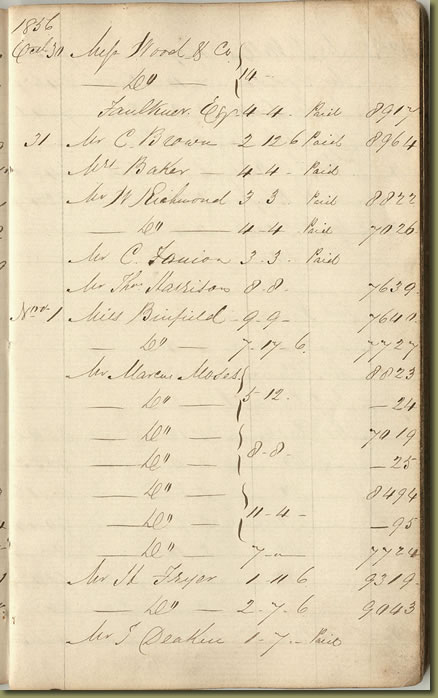 1856
Octr 30 Messrs Wood & Co.
— Do — } 14 –
Faulkner Esqr 4 – 4 – Paid 8917
31 Mr C. Brown – 2 12 6 Paid 8964
Mrs Baker – 4 – 4 – Paid
Mr W Richmond 3 3 Paid 8822
— Do — 4 – 4 Paid 7026
Mr C. 3 – 3 – Paid
Mr Thos Harrison 8 – 8 – 7639
Novr 1 Miss Binfield – 9 – 9 – 7640
— Do — 7 – 17 – 6 7727
Mr Marcus Moses 8823
— Do — } 5 – 12 – – 24
— Do — 7019
— Do — } 8 – 8 – – 25
— Do — 8494
— Do — } 11 – 4 – – 95
— Do — 7 – – 7724
Mr H Fryer 1 – 11 6 9319
— Do — 2 – 7 – 6 9043
Mr J Deakin 1 – 7 – Paid